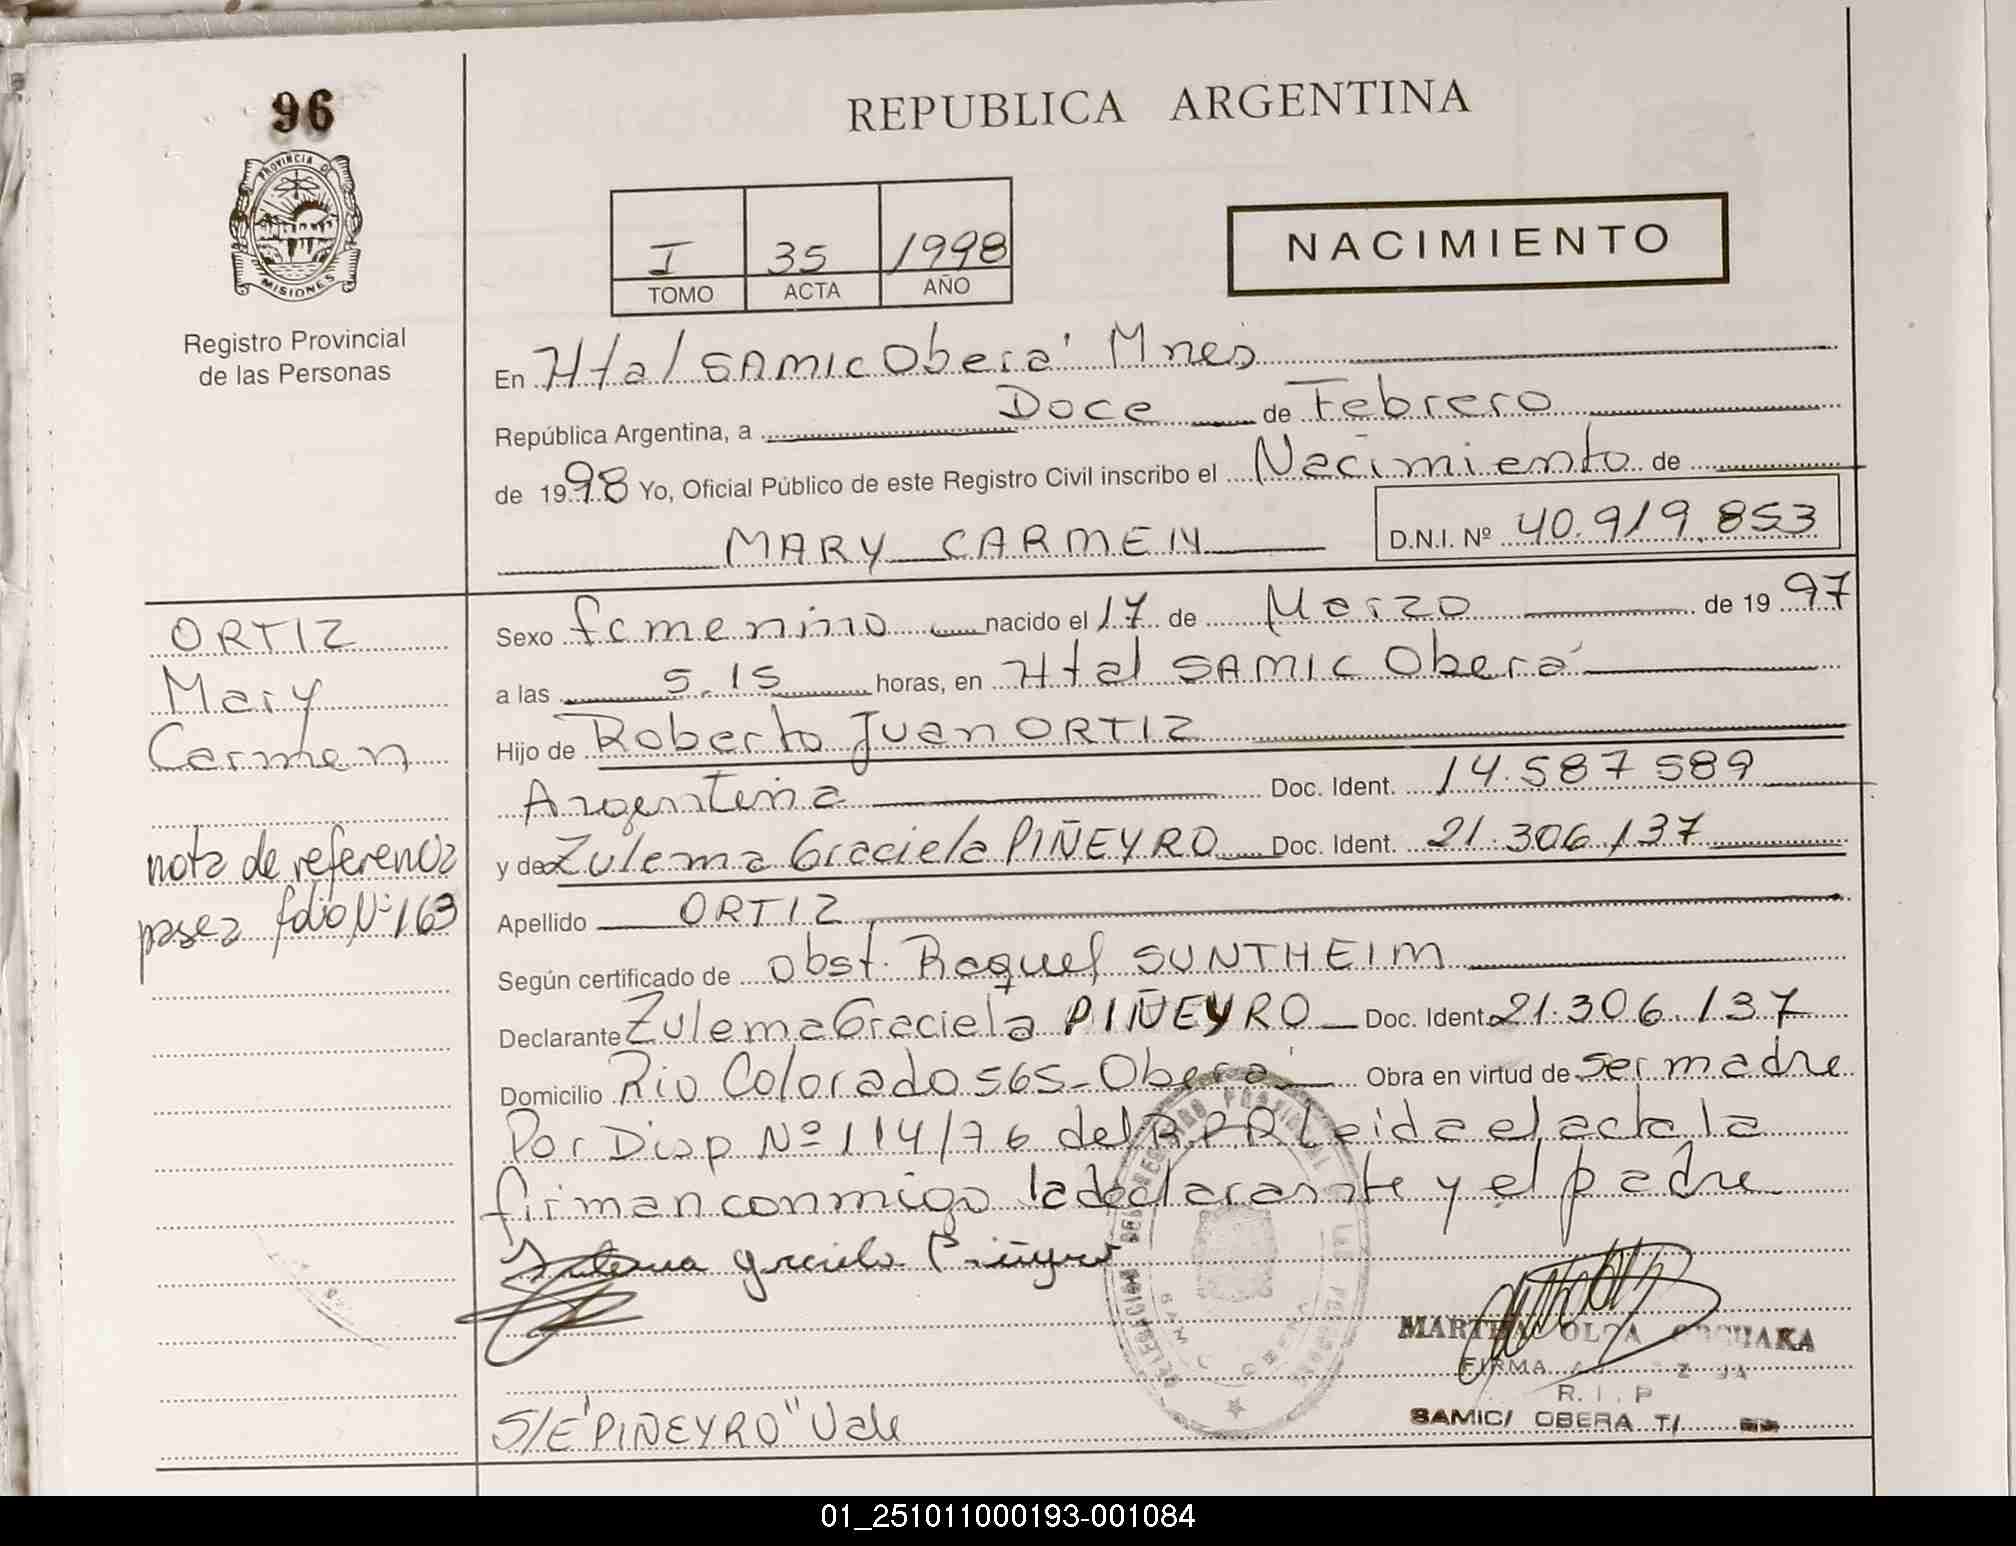 96
REPUBLICA ARGENTINA
PROVINCIA DE
MISIONES
Registro Provincial
de las Personas
I 35 1998
TOMO ACTA AÑO
NACIMIENTO
En Htal SAMIC Oberá Mnes
República Argentina, a Doce de Febrero
de 1998 Yo, Oficial Público de este Registro Civil inscribo el Nacimiento de
MARY CARMEN D.N.I. Nº 40.919.853
ORTIZ
Mary
Carmen
nota de referencia
pasea folio Nº 163
Sexo femenino nacido el 17 de Marzo de 1997
a las 5.15 horas, en Htal SAMIC Oberá
Hijo de Roberto Juan ORTIZ
Argentina Doc. Ident. 14.587589
y de Zulema Graciela PIÑEYRO Doc. Ident. 21.306.137
Apellido ORTIZ
Según certificado de obst. Raquel SUNTHEIM
Declarante Zulema Graciela PIÑEYRO Doc. Ident. 21.306.137
Domicilio Rio Colorado 565-Oberá Obra en virtud de ser madre
Por Disp Nº 114/76 del R.P.P. Leida el acta la
firman conmigo la declarante y el padre
Zulema Graciela Piñeyro
MARTHA OLGA
FIRMA
R. I. P
SAMIC/ OBERA T/
S/E "PIÑEYRO" Vale
01_251011000193-001084